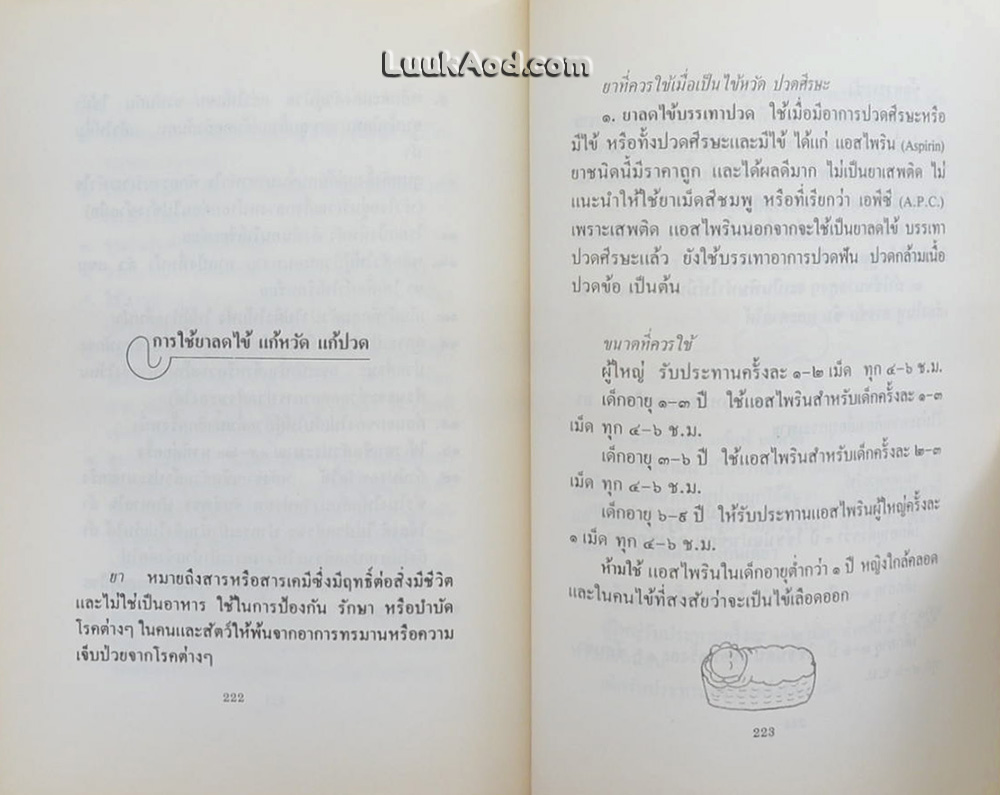 LuukAod.com
การใช้ยาลดไข้ แก้หวัด แก้ปวด
ยา หมายถึงสารหรือสารเคมีซึ่งมีฤทธิ์ต่อสิ่งมีชีวิต
และไม่ใช่เป็นอาหาร ใช้ในการป้องกัน รักษา หรือบำบัด
โรคต่างๆ ในคนและสัตว์ให้พ้นจากอาการทรมานหรือความ
เจ็บป่วยจากโรคต่างๆ
222
ยาที่ควรใช้เมื่อเป็นไข้หวัด ปวดศีรษะ
๑. ยาลดไข้บรรเทาปวด ใช้เมื่อมีอาการปวดศีรษะหรือ
มีไข้ หรือทั้งปวดศีรษะและมีไข้ ได้แก่ แอสไพริน (Aspirin)
ยาชนิดนี้มีราคาถูก และได้ผลดีมาก ไม่เป็นยาเสพติด ไม่
แนะนำให้ใช้ยาเม็ดสีชมพู หรือที่เรียกว่า เอพีซี (A.P.C.)
เพราะเสพติด แอสไพรินนอกจากจะใช้เป็นยาลดไข้ บรรเทา
ปวดศีรษะแล้ว ยังใช้บรรเทาอาการปวดฟัน ปวดกล้ามเนื้อ
ปวดข้อ เป็นต้น
ขนาดที่ควรใช้
ผู้ใหญ่ รับประทานครั้งละ ๑-๒ เม็ด ทุก ๔-๖ ช.ม.
เด็กอายุ ๑-๓ ปี ใช้แอสไพรินสำหรับเด็กครั้งละ ๑-๓
เม็ด ทุก ๔-๖ ช.ม.
เด็กอายุ ๓-๖ ปี ใช้แอสไพรินสำหรับเด็กครั้งละ ๒-๓
เม็ด ทุก ๔-๖ ช.ม.
เด็กอายุ ๖-๙ ปี ให้รับประทานแอสไพรินผู้ใหญ่ครั้งละ
๑ เม็ด ทุก ๔-๖ ช.ม.
ห้ามใช้ แอสไพรินในเด็กอายุต่ำกว่า ๑ ปี หญิงใกล้คลอด
และในคนไข้ที่สงสัยว่าจะเป็นไข้เลือดออก
223